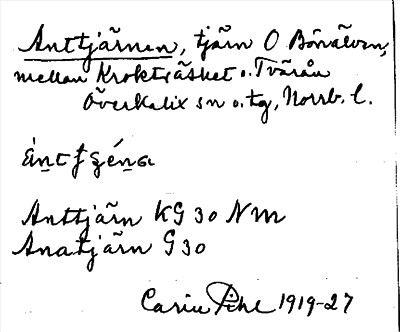 Anttjärnen, tjärn O Bönälven,
mellan Krokträsket o. Tvärån
Överkalix sn o. tg, Norrb. l.
Anttjärn KG 30 NM
Anatjärn G30
Carin Pihl 1919-27